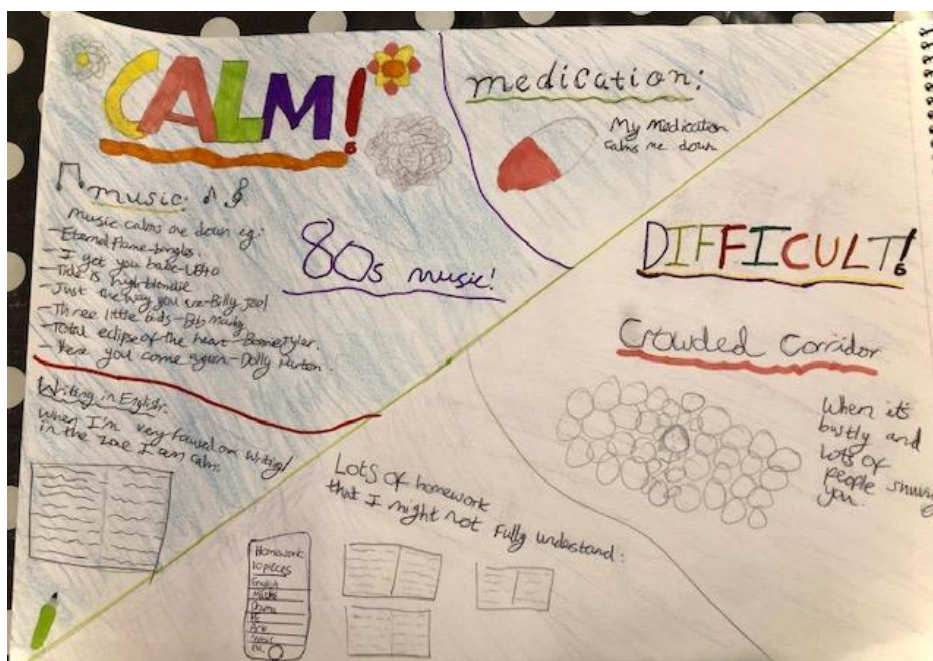 CALM!
music:
music calms me down eg:
- Eternal flame - bangles
- I got you babe - UB40
- Tide is high - blondie
- Just the way you are - Billy Joel
- Three little birds - Bob Marley
- Total eclipse of the heart - Bonnie Tyler.
- Here you come again - Dolly Parton.
80s music!
Writing in English:
When I'm very focused on writing/
in the zone I am calm.
medication:
My Medication
calms me down
DIFFICULT!
Crowded Corridor
When it's
bustly and
lots of
people shuving
you.
Lots of homework
that I might not Fully understand:
Homework
10 pieces
English
Maths
Drama
PE
Art